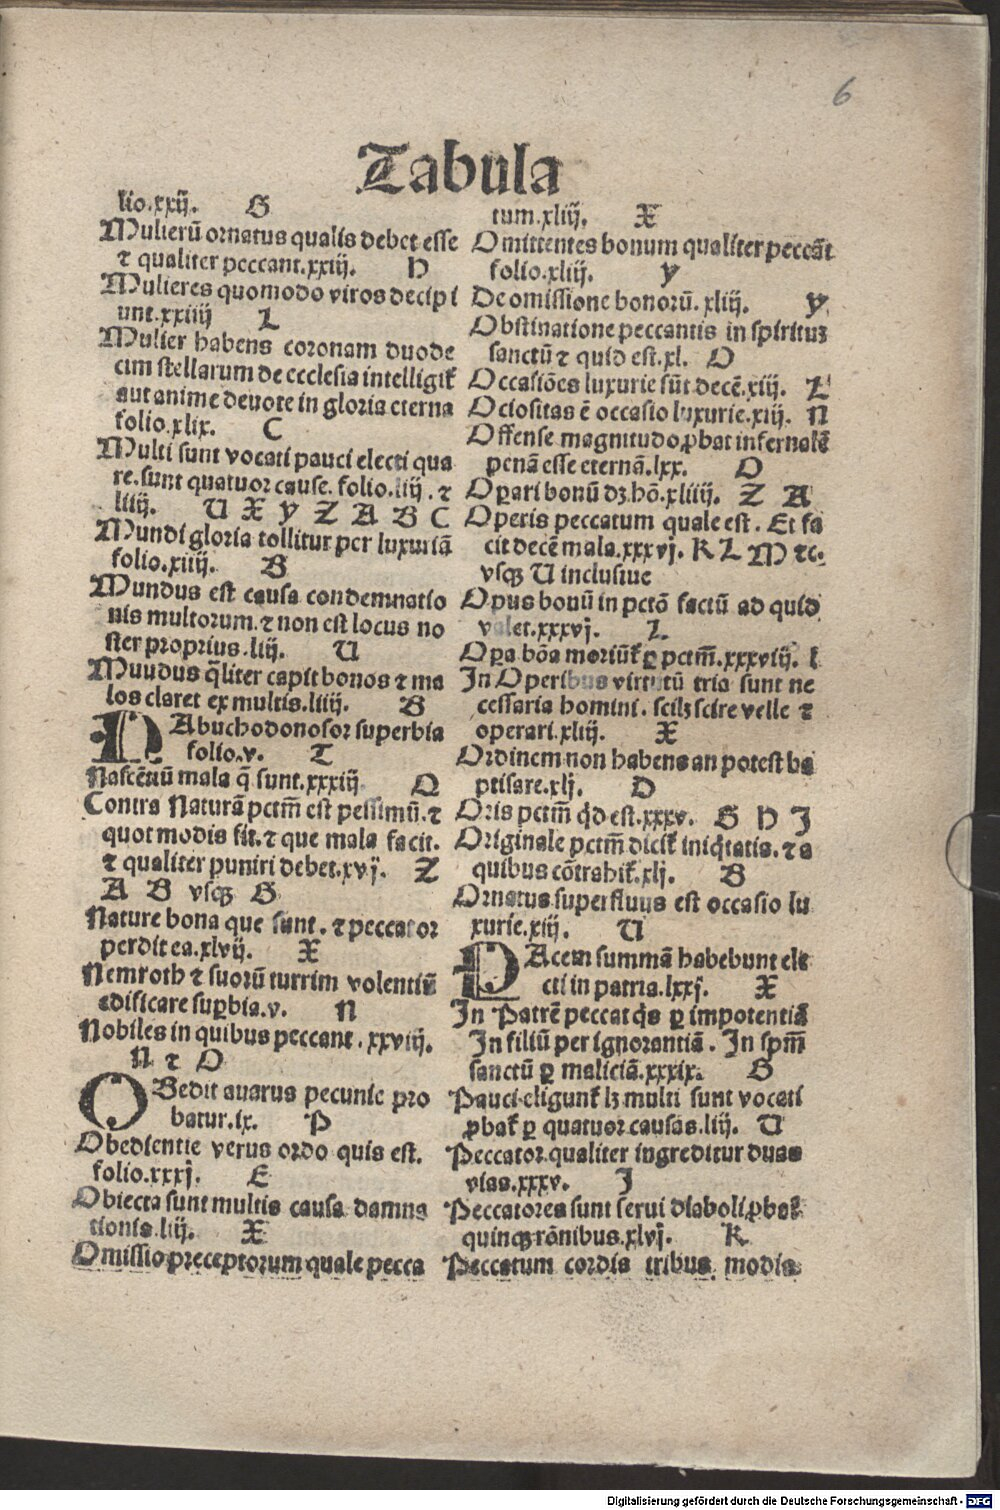 6
Tabula
lio.xxij. G
Mulierū ornatus qualis debet esse
⁊ qualiter peccant.xxiij. H
Mulieres quomodo viros decipi
unt.xxiiij L
Mulier habens coronam duode
cim stellarum de ecclesia intelligit᷑
aut anime deuote in gloria eterna
folio.xlix. C
Multi sunt vocati pauci electi qua
re.sunt quatuor cause. folio.liij.⁊
liiij. U X Y Z A B C
Mundi gloria tollitur per luxuriā
folio.xiiij. B
Mundus est causa condemnatio
nis multorum.⁊ non est locus no
ster proprius.liij. U
Muudus q̄liter capit bonos ⁊ ma
los claret ex multis.liiij. B
NAbuchodonosor superbia
folio.v. T
Nascētiū mala q̄ sunt.xxxiij. Q
Contra Naturā pctm̄ est pessimū.⁊
quot modis fit.⁊ que mala facit.
⁊ qualiter puniri debet.xvj. Z
A B vsqꝫ G
Nature bona que sunt.⁊ peccator
perdit ea.xlvij. X
Nemroth ⁊ suorū turrim volentiū
edificare suꝑbia.v. N
Nobiles in quibus peccant.xxviij.
N ⁊ O
OBedit auarus pecunie pro
batur.ix. P
Obedientie verus ordo quis est.
folio.xxxj. E
Obiecta sunt multis causa damna
tionis.liij. X
Omissio preceptorum quale pecca
tum.xliij. X
Omittentes bonum qualiter peccāt
folio.xliij. Y
De omissione bonorū.xliij. Y
Obstinatione peccantis in spiritū
sanctū ⁊ quid est.xl. O
Occasiōes luxurie sūt decē.xiij. L
Ociositas ē occasio luxurie.xiij. N
Offense magnitudo ꝓbat infernalē
penā esse eternā.lxx. O
Oꝑari bonū dꝫ hō.xliiij. Z A
Operis peccatum quale est. Et fa
cit decē mala.xxxvj. K L M ⁊c.
vsqꝫ U inclusiue
Opus bonū in pctō factū ad quid
valet.xxxvj. L
Oꝑa bōa moriūt᷑ ꝑ pctm̄.xxxviij. I
In Operibus virtutū tria sunt ne
cessaria homini. scilꝫ scire velle ⁊
operari.xliij. X
Ordinem non habens an potest ba
ptisare.xlj. D
Oris pctm̄ qd̄ est.xxxv. G H I
Originale pctm̄ dicit᷑ iniq̇tatis.⁊ a
quibus cōtrahit᷑.xlj. B
Ornatus superfluus est occasio lu
xurie.xiij. U
PAcem summā habebunt ele
cti in patria.lxxj. X
In Patrē peccat q̇s ꝑ impotentiā
In filiū per ignorantiā. In spm̄
sanctū ꝑ maliciā.xxxix. G
Pauci eligunt᷑ lꝫ multi sunt vocati
ꝓbat᷑ ꝑ quatuor causas.liij. U
Peccator qualiter ingreditur duas
vias.xxxv. I
Peccatores sunt serui diaboli.ꝓbat᷑
quinqꝫ rōnibus.xlvj. K
Peccatum cordis tribus modis
Digitalisierung gefördert durch die Deutsche Forschungsgemeinschaft - DFG